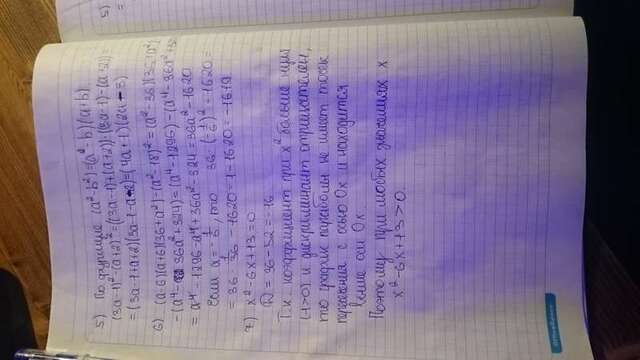 5) По формуле (a²-b²)=(a-b)(a+b)
(3a-1)²-(a+2)²=((3a-1)+(a+2))·((3a-1)-(a+2))=
=(3a-1+a+2)(3a-1-a-2)=(4a+1)(2a-3)
6) (a-6)(a+6)(36+a²)-(a²-18)²=(a²-36)(36+a²)-
-(a⁴-36a²+324)=(a⁴-1296)-(a⁴-36a²+324)=
=a⁴-1296-a⁴+36a²-324=36a²-1620
Если a=-1/6, то 36·(-1/6)²-1620=
=36·1/36-1620=1-1620=-1619
7) x²-6x+13=0
D=36-52=-16
Т.к. коэффициент при x² больше нуля
(1>0) и дискриминант отрицателен,
то график параболы не имеет точек
пересечения с осью Ox и находится
выше оси Ox.
Поэтому при любых значениях x
x²-6x+13>0.
5)
=